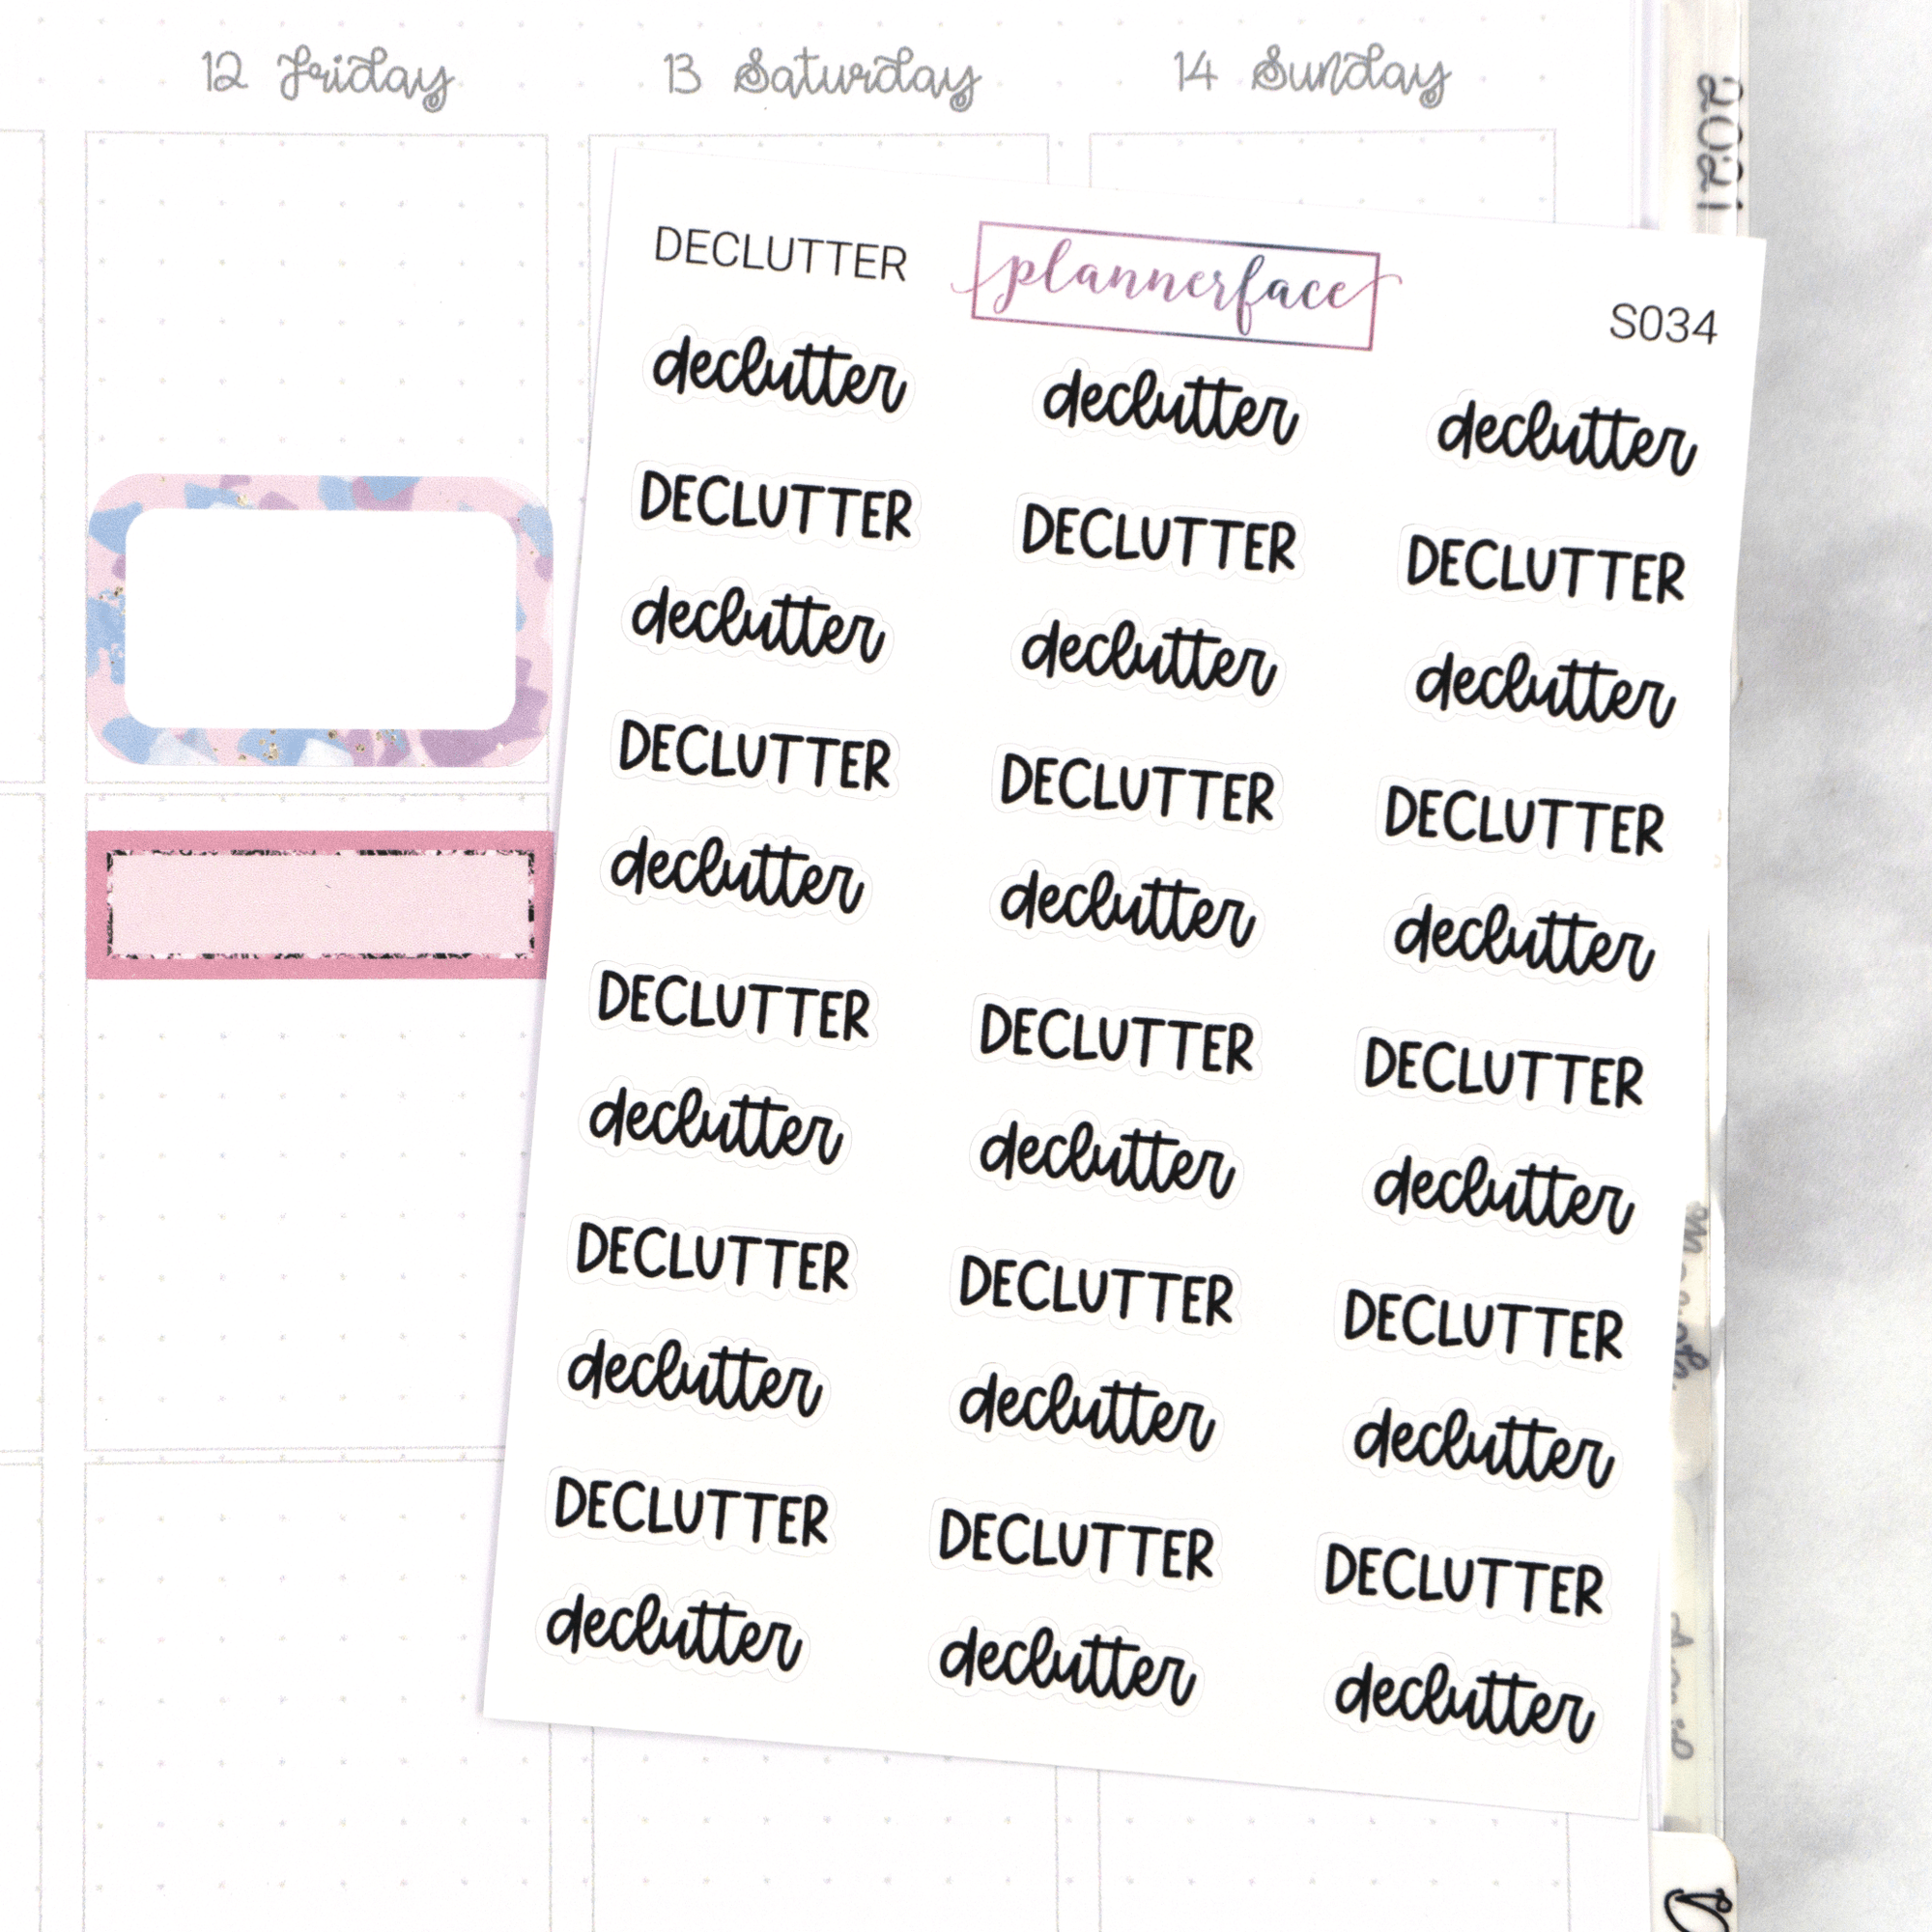 12 Friday 13 Saturday 14 Sunday
2021
DECLUTTER plannerface S034
declutter declutter declutter
DECLUTTER DECLUTTER DECLUTTER
declutter declutter declutter
DECLUTTER DECLUTTER DECLUTTER
declutter declutter declutter
DECLUTTER DECLUTTER DECLUTTER
declutter declutter declutter
DECLUTTER DECLUTTER DECLUTTER
declutter declutter declutter
DECLUTTER DECLUTTER DECLUTTER
declutter declutter declutter